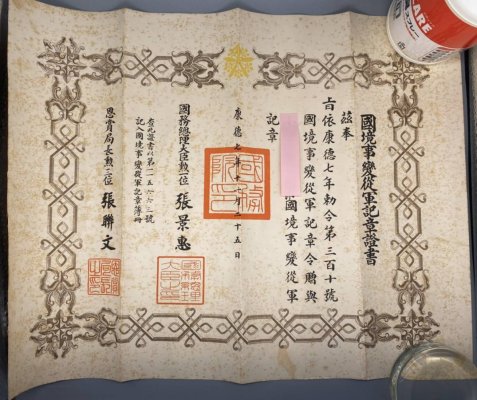 國境事變從軍記章證書
茲奉
上旨依康德七年勅令第三百十號
國境事變從軍記章令贈與
國境事變從軍
記章
康德七年十二月二十五日
國務總理大臣勲一位 張景惠
查此證書以第一一五六六三號
記入國境事變從軍記章簿冊
恩賞局長勲三位 張聯文